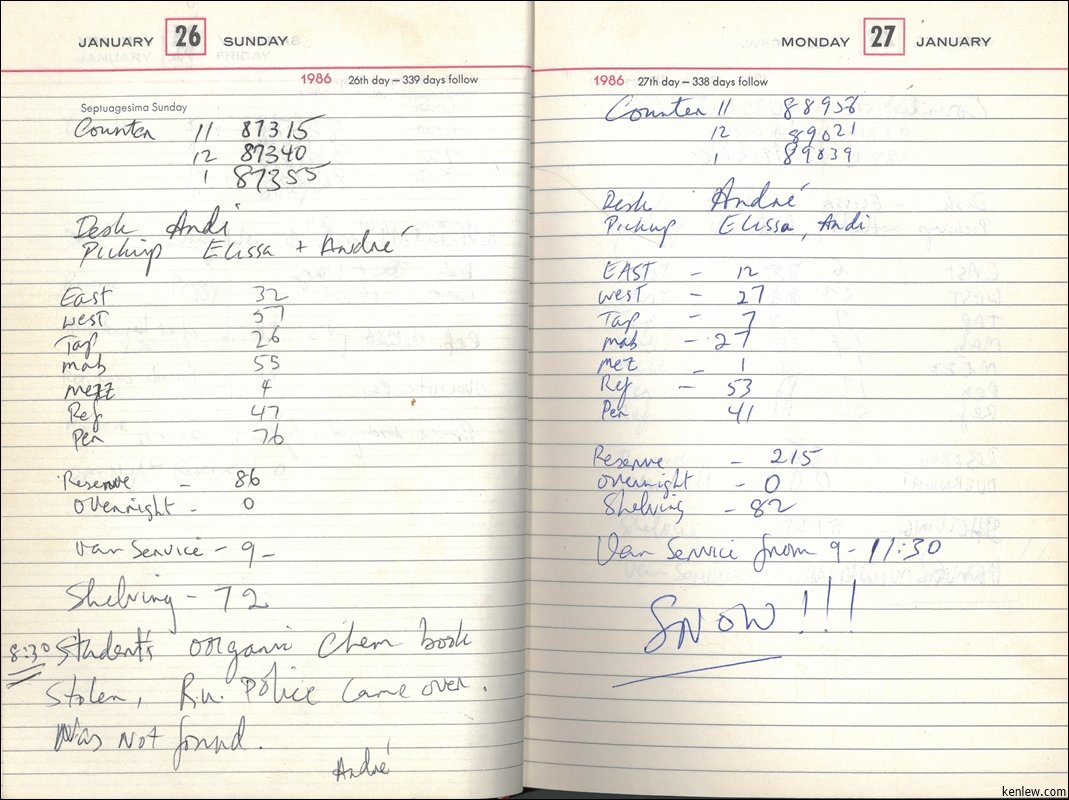 JANUARY 26 SUNDAY
1986 26th day – 339 days follow
Septuagesima Sunday
Counter 11 87315
12 87340
1 87355
Desk Andi
Pickup Elissa + André
East 32
West 57
Tap 26
mab 55
Mezz 4
Ref 47
Per 76
Reserve - 86
Overnight - 0
Van Service - 9 -
Shelving - 72
8:30 Student's organic Chem book
Stolen, R.U. Police came over.
Was Not found.
André
MONDAY 27 JANUARY
1986 27th day – 338 days follow
Counter 11 88956
12 89021
1 89039
Desk André
Pickup Elissa, Andi
EAST - 12
West - 27
Tap - 7
mab - 27
mez - 1
Ref - 53
Per 41
Reserve - 215
overnight - 0
Shelving - 82
Van Service from 9 - 11:30
SNOW!!!
kenlew.com